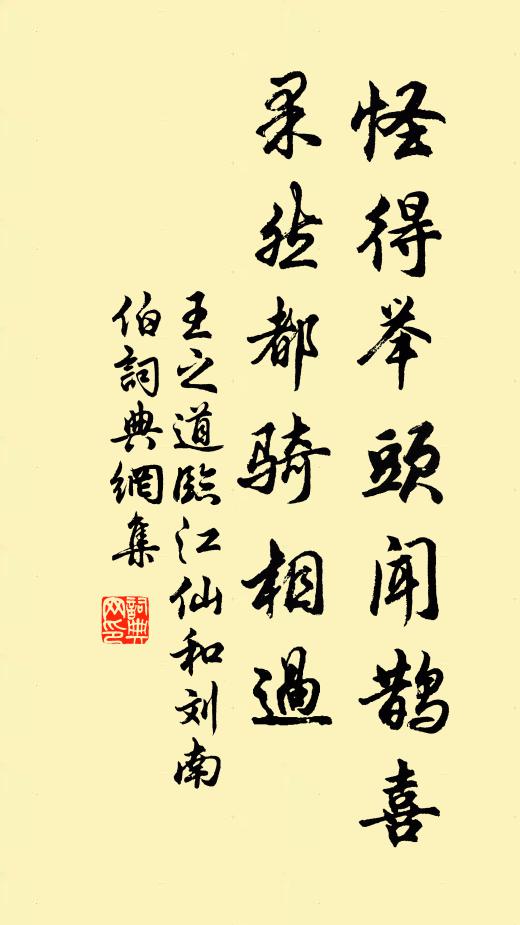 怪得举頭闻鹊喜
果然都骑相過
王之道臨江仙和刘南
伯詞典網集
詞典网印